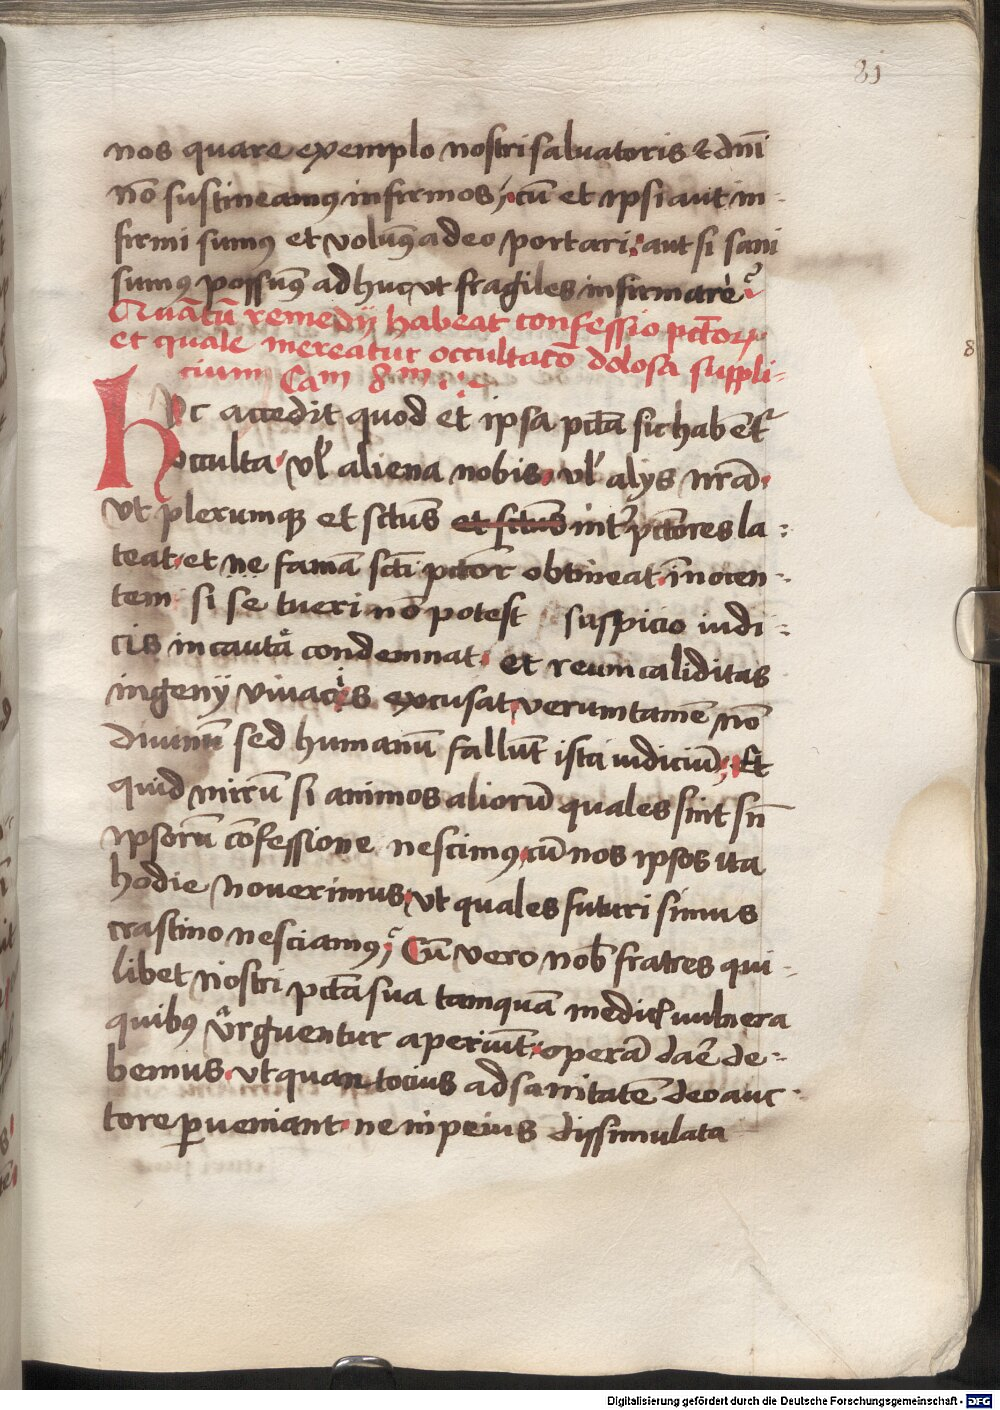 81
nos quare exemplo nostri saluatoris ⁊ dn̄i
nō sustineamꝰ infirmos, cū et ipsi aut in-
firmi sumꝰ et volum̄ꝰ a deo portari: aut si sani
sumꝰ possum̄ꝰ ad huc vt fragiles infirmare?
Quātū remedij habeat confessio pctōrꝝ
et quale mereatur occultacō dolosa suppli-
cium Cam 8m
8
Hoc accedit quod et ipsa pctā sic habētr
occulta vl' aliena nobis. vl' alys nrā.
vt plerumqꝫ et sctūs et sctūs intr̾ pctōres la-
teat. et ne famā sctī pctōr obtineat. īnocen-
tem si se tueri nō potest suspicio iudi-
cis incauta condemnat. et reum caliditas
ingenij viuacis excusat. verumtamē nō
diuinū sed humanū fallūt ista iudiciū; Et
quid mirū si animos aliorū quales sint sn̄
ipsorū cōfessione nescimꝰ, cū nos ipsos ita
hodie nouerimus, vt quales futuri simus
crastino nesciamꝰ? Cū vero nob̄ fratres qui-
libet nostri pctā sua tamquā medici vulnera
quibꝰ vrguentur aperiūt: operā daē de-
bemus. vt quantocius ad sanitatē deo auc-
tore ꝑueniant. ne in peius dissimulata
Digitalisierung gefördert durch die Deutsche Forschungsgemeinschaft - DFG